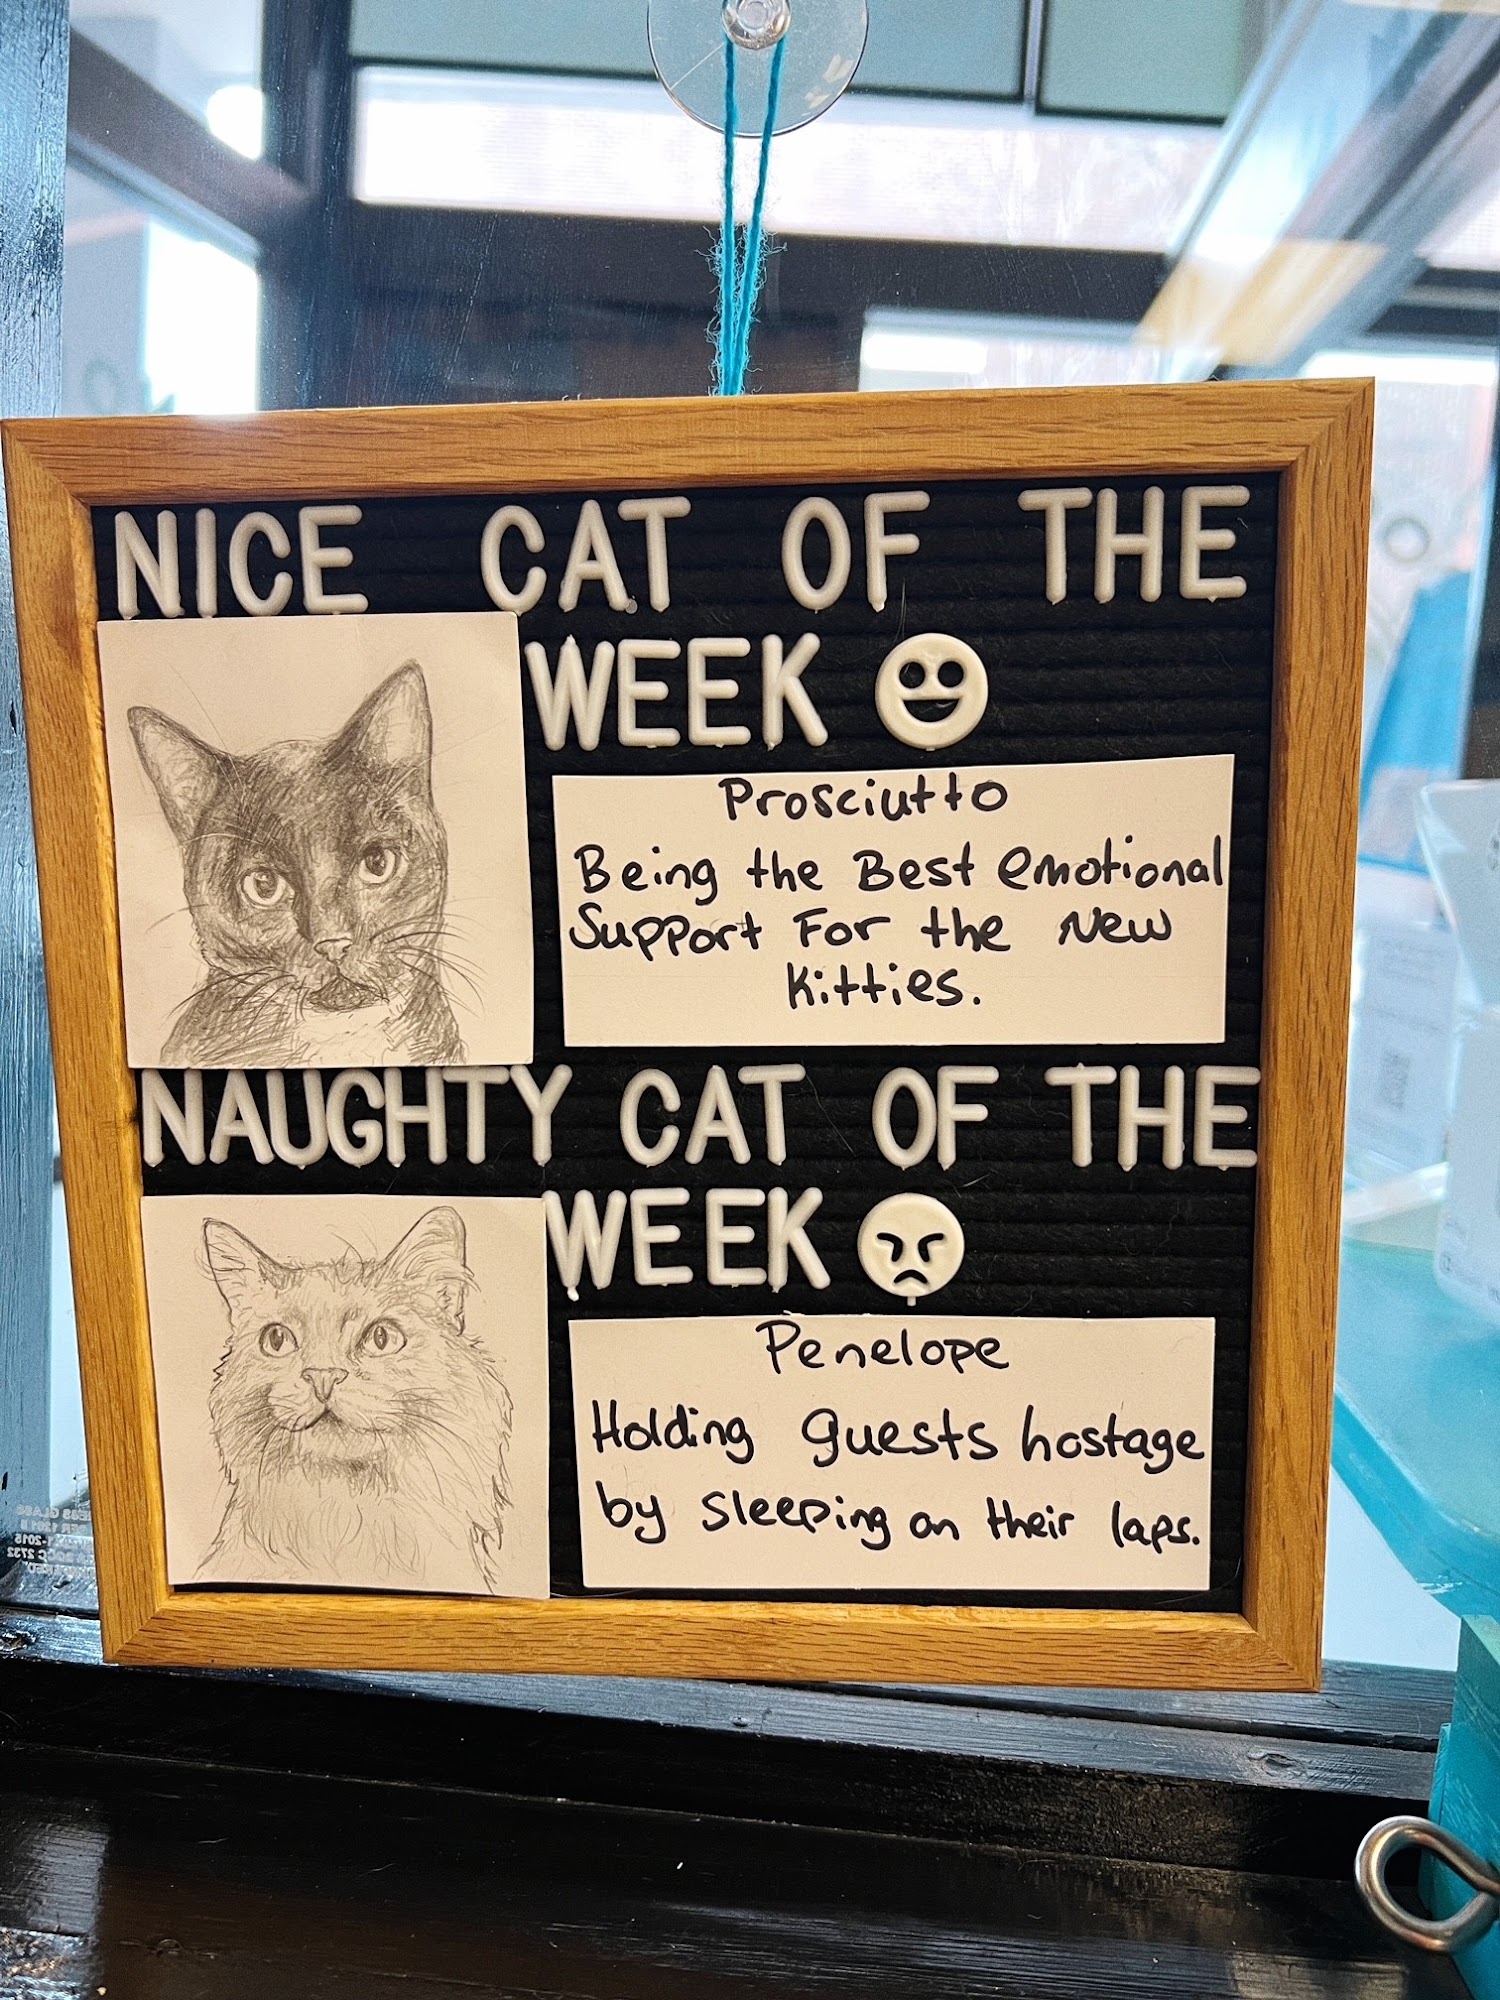 NICE CAT OF THE
WEEK
Prosciutto
Being the Best emotional
Support For the New
Kitties.
NAUGHTY CAT OF THE
WEEK
Penelope
Holding guests hostage
by sleeping on their laps.